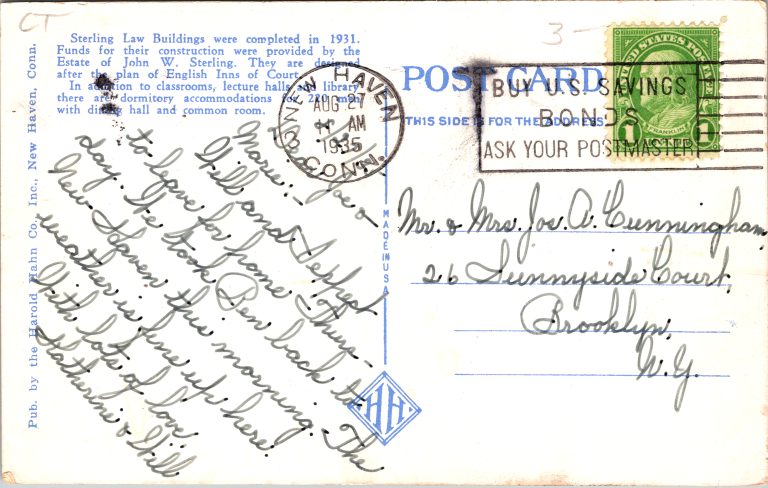 CT
3-
Sterling Law Buildings were completed in 1931.
Funds for their construction were provided by the
Estate of John W. Sterling. They are designed
after the plan of English Inns of Court.
In addition to classrooms, lecture halls and library
there are dormitory accommodations for 220 men
with dining hall and common room.
POST CARD
THIS SIDE IS FOR THE ADDRESS
NEW HAVEN
AUG 27
AM
1935
CONN.
BUY U.S. SAVINGS
BONDS
ASK YOUR POSTMASTER
UNITED STATES POSTAGE
FRANKLIN
1 1
Dear Joe &
Marie:-
Will and I expect
to leave for home Thurs-
day. We took Ben back to
New Haven this morning. The
weather is fine up here!
With lots of love
Katherine & Will
Mr. & Mrs. Jos. A. Cunningham,
26 Sunnyside Court,
Brooklyn,
N.Y.
MADE IN USA
HH
Pub. by the Harold Hahn Co., Inc., New Haven, Conn.